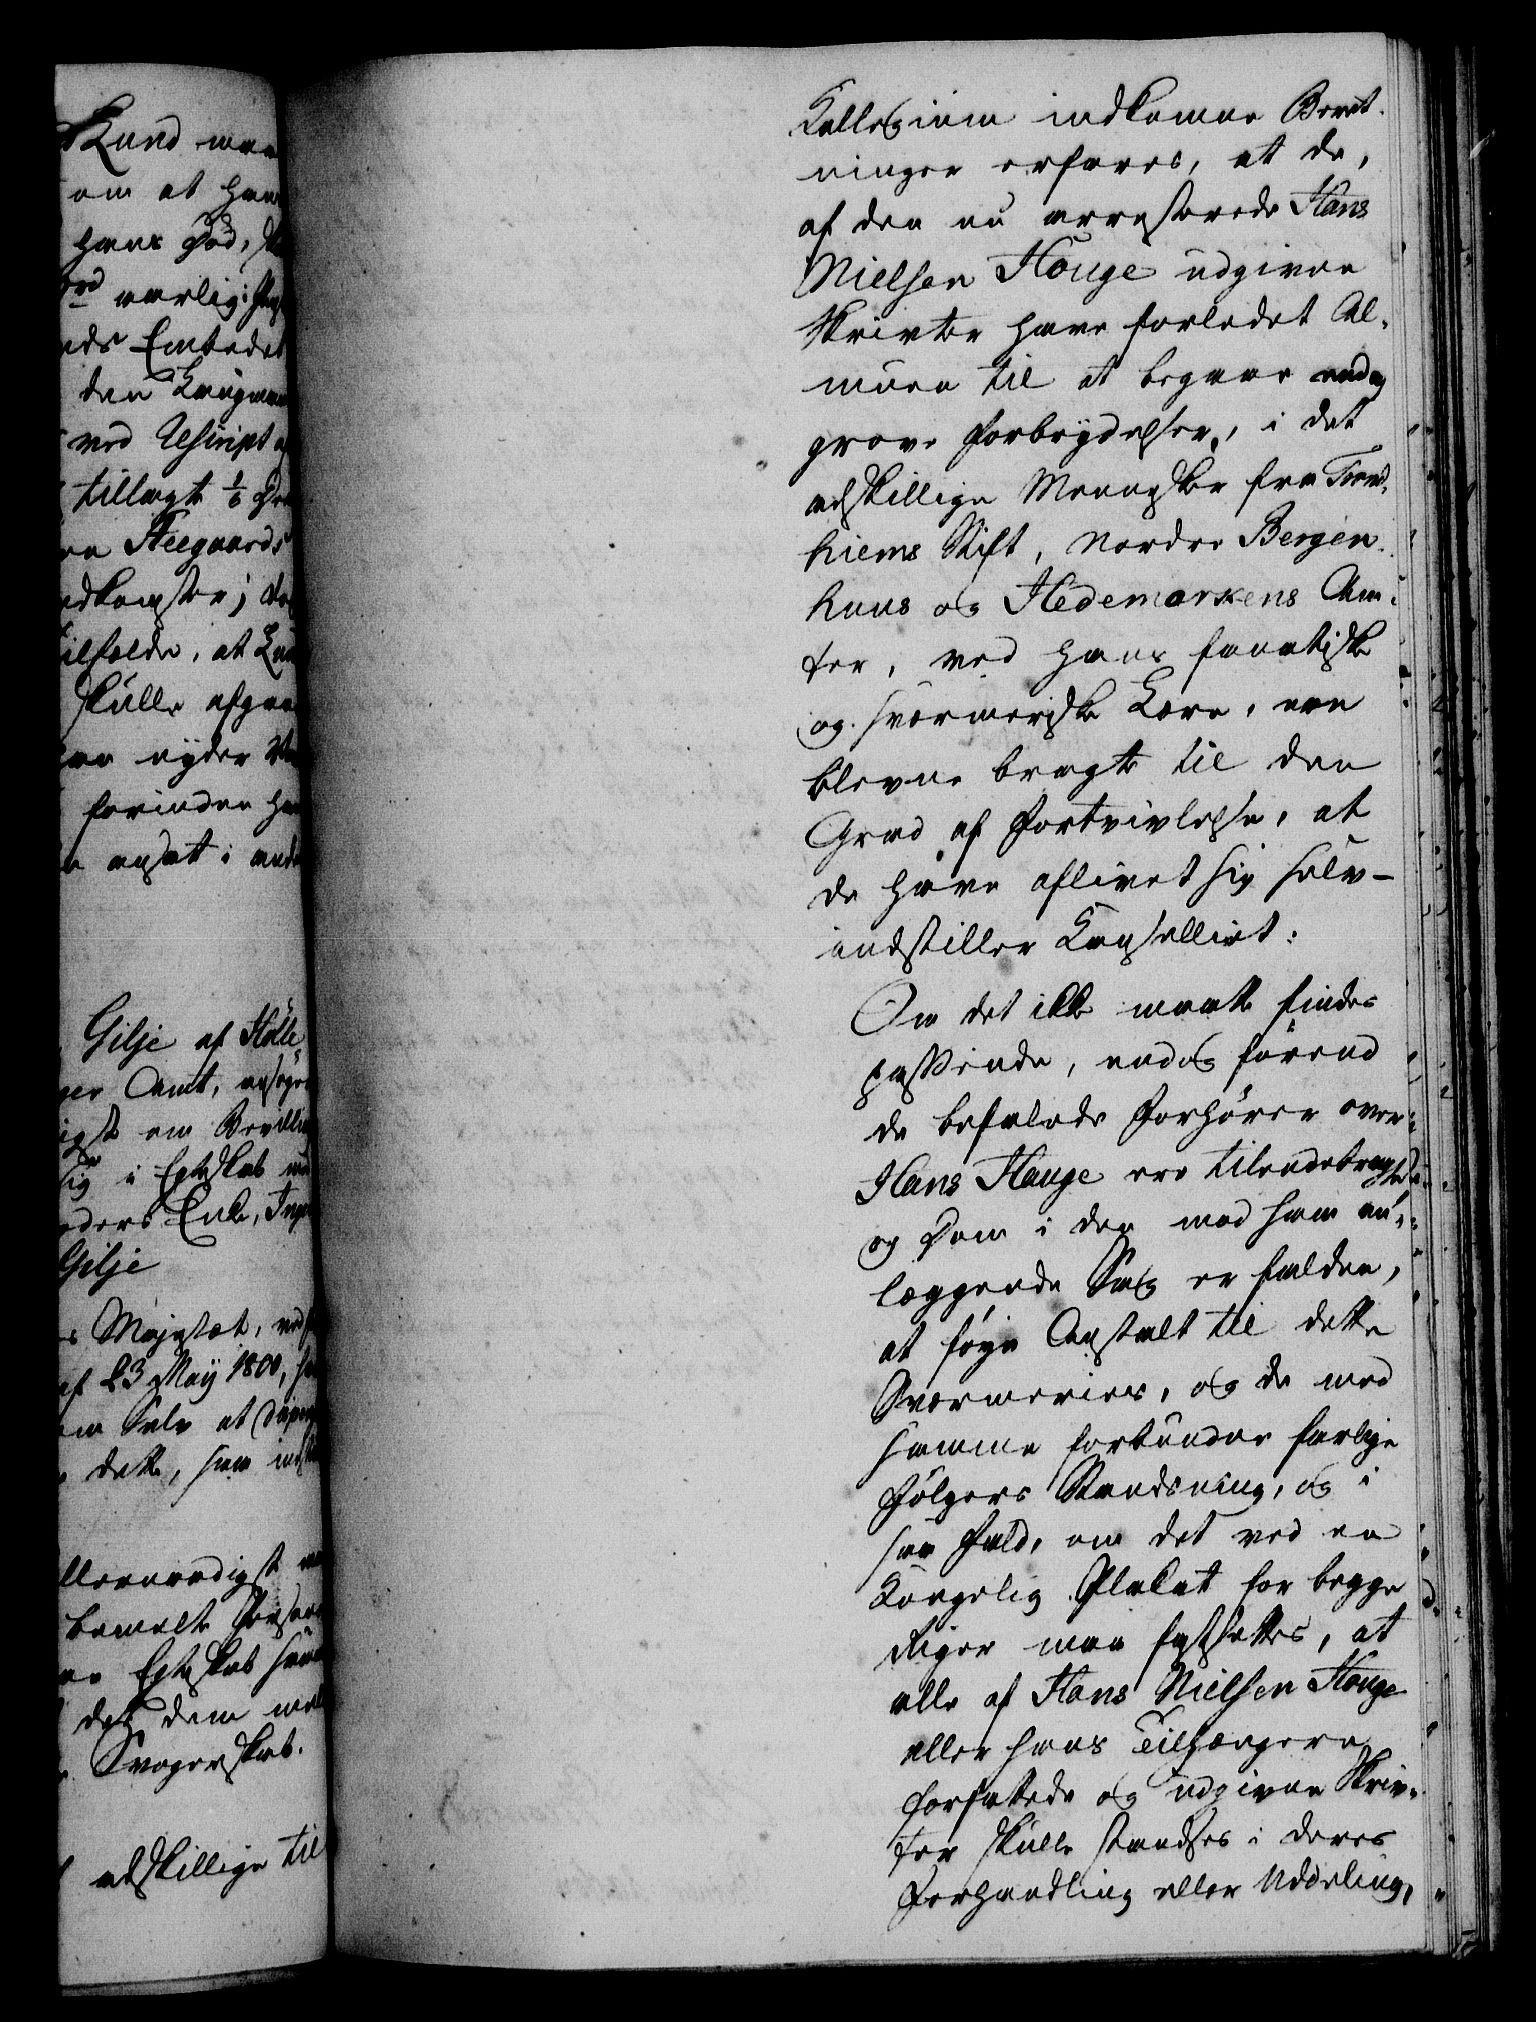 Lund maa
om at han
hans Død, sk
ord aarlig
eds Embedet
den Kaugmand
ved Rescript af
tillagt 1/6
en Steegaards
ndkomster;
ilfælde, at Lun
skulle afgaae
an nyder
forinden han
ansat i and
Gilje af Hølle
ger Amt, ansøger
igst om Bevilling
sig i Egteskab med
oders Enke, Inge
Gilje
s Majestæt, ved
af 23 May 1800, ha
em Selv at dispen
dette, saa indst
llernaadigst
bemelte Person
Egteskab
det dem
Svogerskab.
adskillige til
Collegium indkomne Beret-
ninger erfares, at de,
af den nu arresterede Hans
Nielsen Houge udgivne
Skrivter have forledet Al-
muen til at begaae endog
grove Forbrydelser, i det
adskillige Mennesker fra Trond-
hiems Stift, Nordre Bergen-
huus og Hedemarkens Am-
ter, ved hans fanatiske
og sværmeriske Lære, ere
blevne bragte til den
Grad af Fortvivlelse, at
de have aflivet sig selv –
indstiller Cancelliet:
Om det ikke maatte findes
passende, endog førend
de befalede Forhører over
Hans Hauge ere tilendebragte
og Dom i den mod ham an-
læggende Sag er falden,
at føye Anstalt til dette
Sværmeries, og de med
samme forbundne farlige
Følgers Standsning, og i
saa Fald, om det ved en
Kongelig Placat for begge
Riger maa fastsættes, at
alle af Hans Nielsen Houge
eller hans Tilhængere
forfattede og udgivne Skriv-
ter skulle standses i deres
Forhandling eller Uddeling,